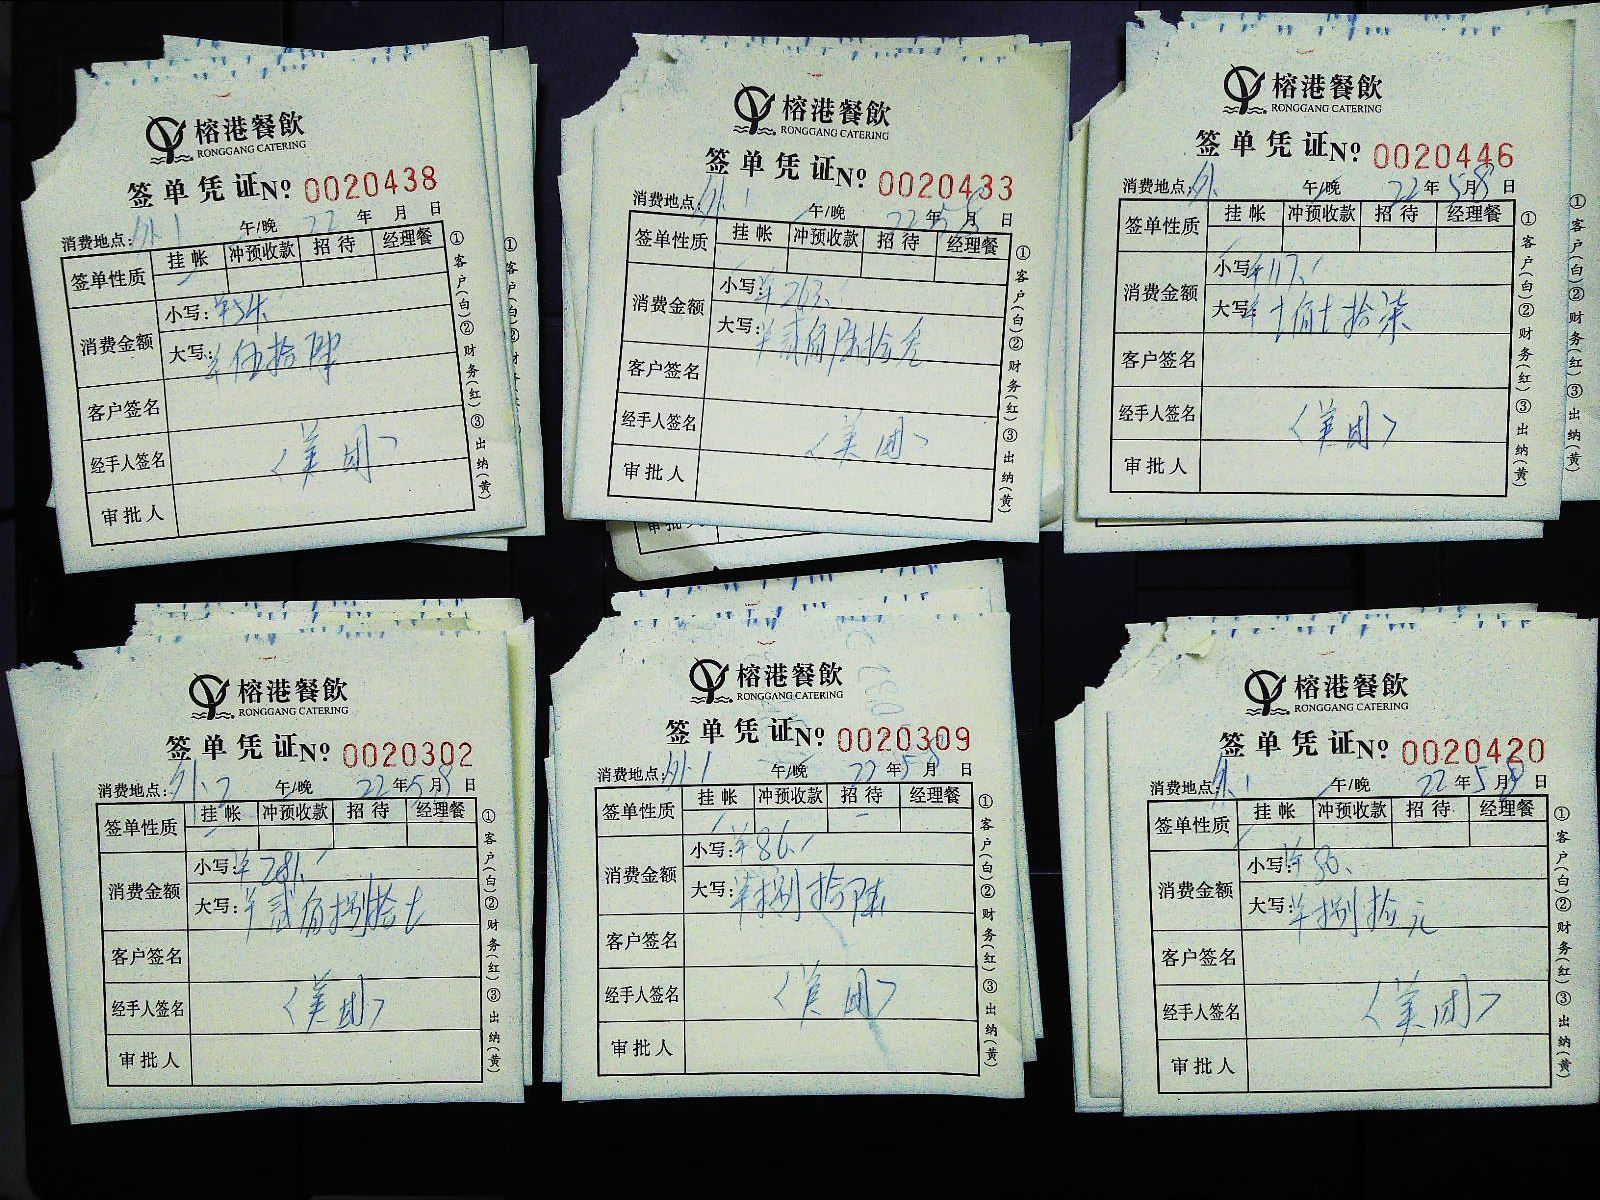 榕港餐飲
RONGGANG CATERING
签单凭证 No 0020438
消费地点: 外1 午/晚 22年 月 日
签单性质 挂帐 冲预收款 招待 经理餐
消费金额 小写:
大写: ¥伍拾陆
客户签名
经手人签名 <美团>
审批人
①客户(白)②财务(红)③出纳(黄)
榕港餐飲
RONGGANG CATERING
签单凭证 No 0020433
消费地点: 外1 午/晚 22年5月8日
签单性质 挂帐 冲预收款 招待 经理餐
消费金额 小写: ¥263
大写: ¥贰佰陆拾
客户签名
经手人签名 <美团>
审批人
①客户(白)②财务(红)③出纳(黄)
审批人
榕港餐飲
RONGGANG CATERING
签单凭证 No 0020446
消费地点: 外 午/晚 22年5月8日
签单性质 挂帐 冲预收款 招待 经理餐
消费金额 小写: ¥117
大写: ¥ 佰 拾柒
客户签名
经手人签名 <美团>
审批人
①客户(白)②财务(红)③出纳(黄)
①客户(白)②财务(红)③出纳(黄)
榕港餐飲
RONGGANG CATERING
签单凭证 No 0020302
消费地点: 外2 午/晚 22年5月8日
签单性质 挂帐 冲预收款 招待 经理餐
消费金额 小写: ¥281
大写: ¥贰佰捌拾
客户签名
经手人签名 <美团>
审批人
①客户(白)②财务(红)③出纳(黄)
榕港餐飲
RONGGANG CATERING
签单凭证 No 0020309
消费地点: 外1 午/晚 22年5月8日
签单性质 挂帐 冲预收款 招待 经理餐
消费金额 小写: ¥86
大写: ¥捌拾陆
客户签名
经手人签名 <美团>
审批人
①客户(白)②财务(红)③出纳(黄)
榕港餐飲
RONGGANG CATERING
签单凭证 No 0020420
消费地点: 外1 午/晚 22年5月8日
签单性质 挂帐 冲预收款 招待 经理餐
消费金额 小写: ¥80
大写: ¥捌拾元
客户签名
经手人签名 <美团>
审批人
①客户(白)②财务(红)③出纳(黄)